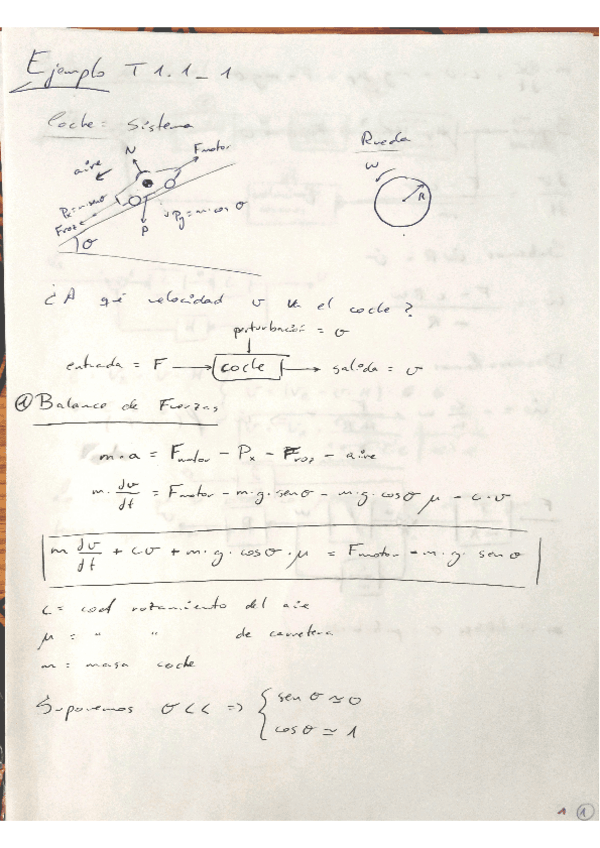 Ejemplo T1.1_1
Coche = Sistema
Rueda
N
Fmotor
aire
ω
R
Froz
P
Py = m·cos θ
θ
¿A qué velocidad v va el coche?
perturbación = θ
entrada = F → coche → salida = v
① Balance de Fuerzas
m·a = Fmotor - Px - Froz - aire
m·dv/dt = Fmotor - m·g·senθ - m·g·cosθ μ - c·v
m dv/dt + c·v + m·g·cosθ·μ = Fmotor - m·g·senθ
c = coef rozamiento del aire
μ = " " de carretera
m = masa coche
Suponemos θ<< => { sen θ ≃ 0
cos θ ≃ 1
1 ①